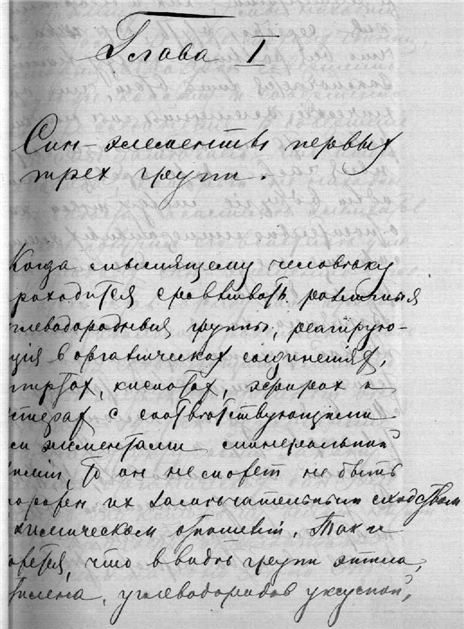 Глава I
Син-элементы первых
трех групп.
Когда мыслящему человѣку
риходится сравнивать различныя
глеводородныя группы, реагирую-
щія в органическах соединениях,
пиртах, кислотах, эфирах и
с соотвѣтствующими
им элементами минеральной
химіи, то он не может не быть
поражен их замѣчательным сходством
химическом отношеніи. Так и
что в видѣ групп этила,
углеводородов уксусной,